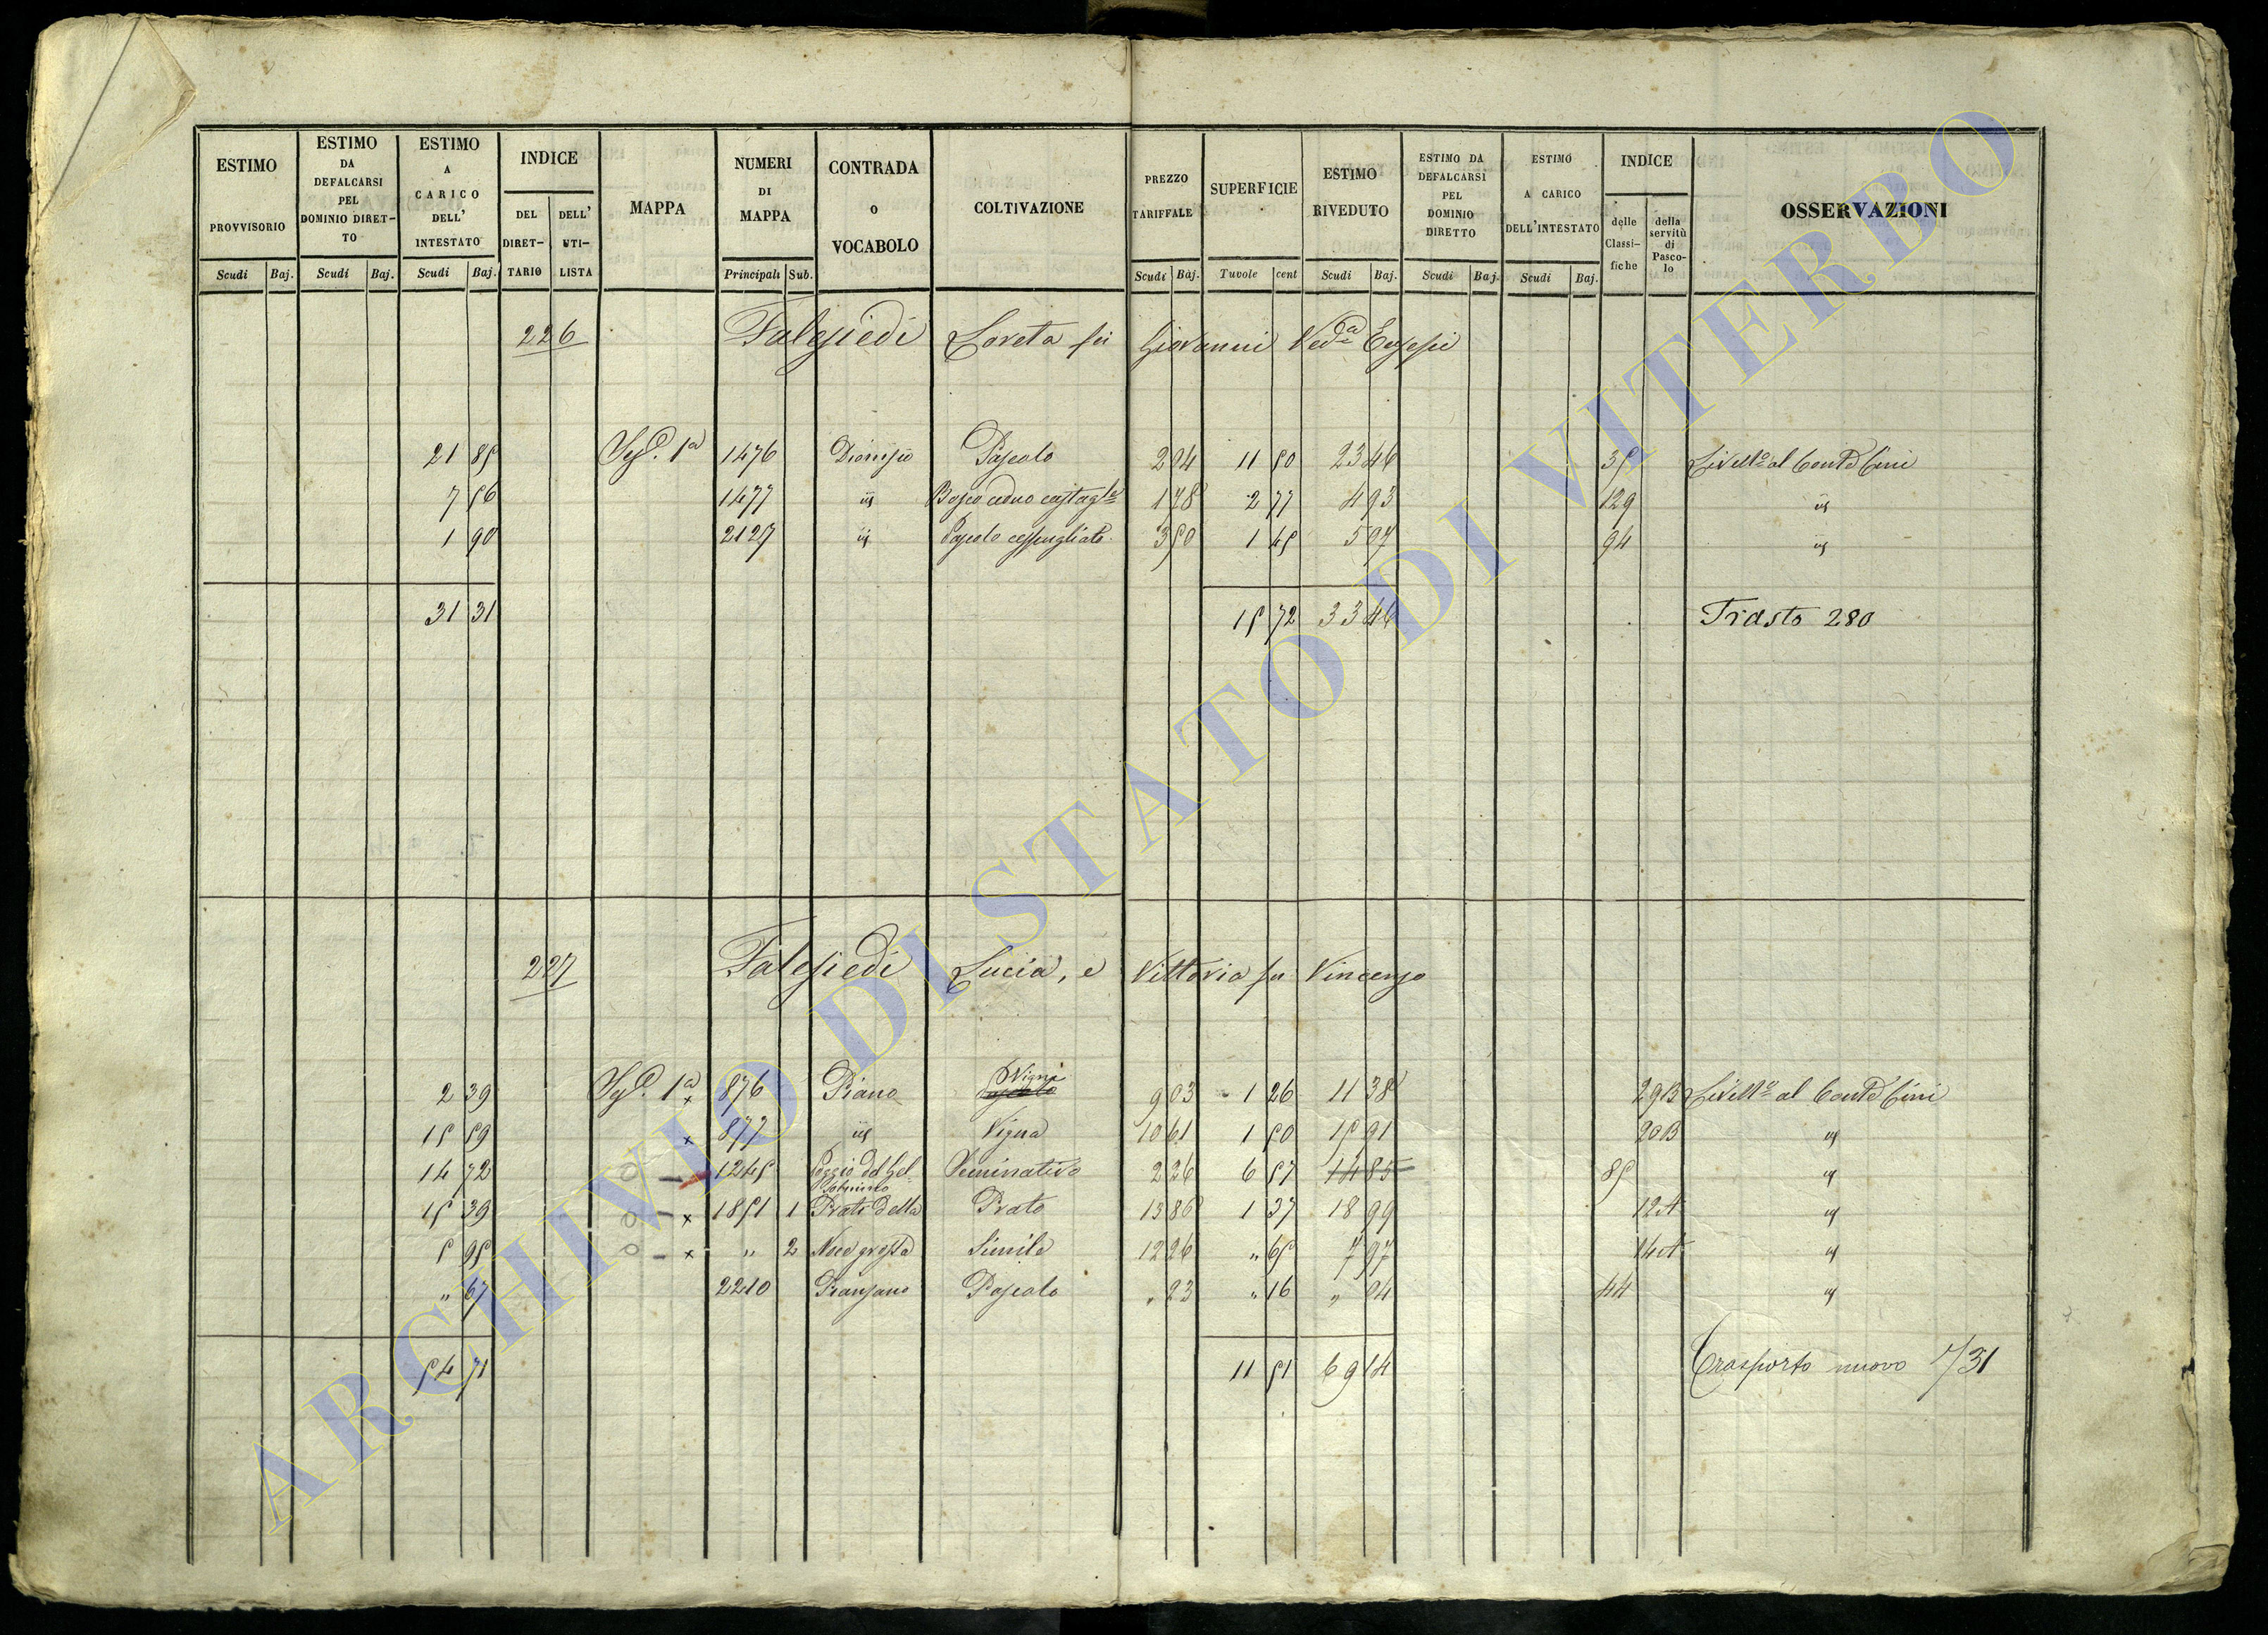 ESTIMO PROVVISORIO
ESTIMO DA DEFALCARSI PEL DOMINIO DIRET-TO
ESTIMO A CARICO DELL' INTESTATO
INDICE
DEL DIRET-TARIO
DELL' UTI-LISTA
MAPPA
NUMERI DI MAPPA
CONTRADA O VOCABOLO
COLTIVAZIONE
PREZZO TARIFFALE
SUPERFICIE
ESTIMO RIVEDUTO
ESTIMO DA DEFALCARSI PEL DOMINIO DIRETTO
ESTIMO A CARICO DELL'INTESTATO
INDICE
delle Classi-fiche
della servitù di Pasco-lo
OSSERVAZIONI
Scudi Baj. Scudi Baj. Scudi Baj. Principali Sub. Scudi Baj. Tavole cent Scudi Baj. Scudi Baj. Scudi Baj.
226 Falesiedi Loreta fu Giovanni Ved.a
21 85 1a 1476 Dionisio Pascolo 2 04 11 50 23 46 35 Livell.o al Conte Cini
7 56 1477 id Bosco ceduo 1 78 2 77 4 93 129 id
1 90 2127 id Pascolo cespugliato 3 50 1 45 5 07 94 id
31 31 15 72 33 46 Trasto 280
227 Falesiedi Lucia, e Vittoria fu Vincenzo
2 39 1a x 876 Piano Vigna Pascolo 9 03 1 26 11 38 29B Livell.o al Conte Cini
15 59 x 877 id Vigna 10 61 1 50 15 91 20B id
14 72 1245 Seminativo 2 26 6 57 14 85 85 id
15 39 x 1851 1 Prato della Prato 13 86 1 37 18 99 12A id
5 95 x " 2 Noce grossa Simile 12 26 " 65 7 97 14A id
" 67 2210 Pransano Pascolo " 23 " 16 " 04 44 id
54 71 11 51 69 14 Trasporto nuovo 731
ARCHIVIO DI STATO DI VITERBO